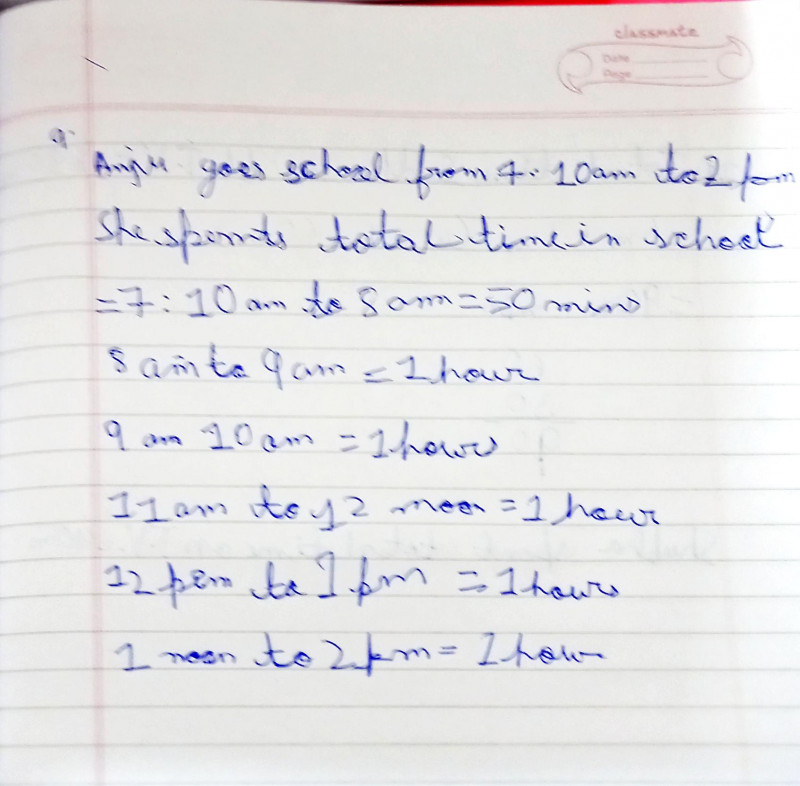 classmate
Date
Page
9.
Anju goes school from 7:10am to 2 pm
She spends total time in school
=7:10 am to 8 am=50 mins
8 am to 9 am = 1 hour
9 am 10 am = 1 hours
11 am to 12 noon = 1 hour
12 pm to 1 pm = 1 hours
1 noon to 2 pm = 1 hour